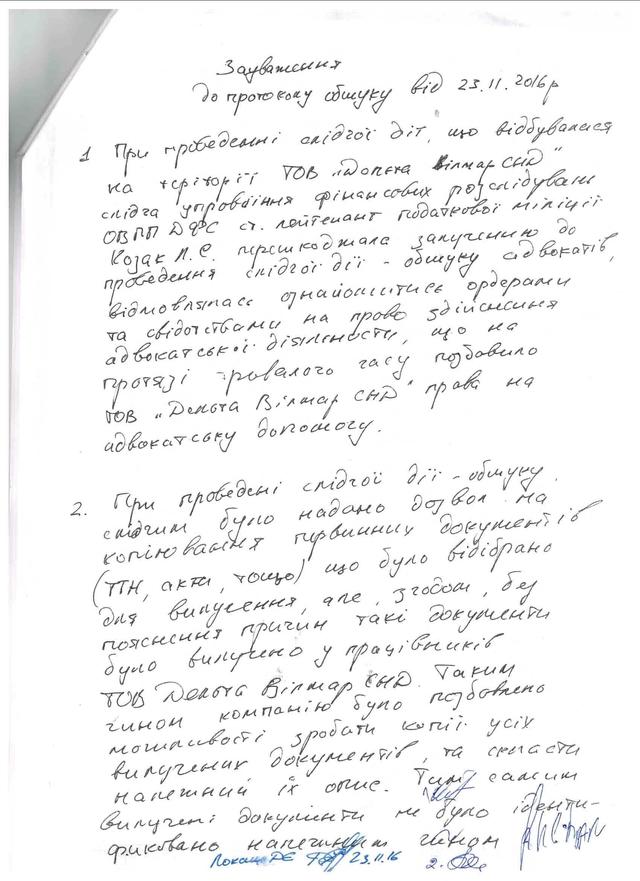 Зауваження
до протоколу обшуку від 23.11.2016р
1 При проведенні слідчої дії, що відбувалася
на території ТОВ „Дельта Вілмар СНД"
слідча управління фінансових розслідувань
ОВПП ДФС ст. лейтенант податкової міліції
Козак Л.Є. перешкоджала залученню до
проведення слідчої дії - обшуку адвокатів,
відмовлялась ознайомитись ордерами
та свідотствами на право здійснення
адвокатської діяльности, що на
протязі тривалого часу позбавило
ТОВ „Дельта Вілмар СНД" права на
адвокатську допомогу.
2. При проведені слідчої дії - обшуку,
слідчим було надано дозвол на
копіювання первинних документів
(ПН, акти, тощо) що було відібрано
для вилучення, але, згодом, без
пояснення причин такі документи
було вилучено у працівників
ТОВ Дельта Вілмар СНД. Таким
чином компанію було позбавлено
можливості зробити копії усіх
вилучених документів, та скласти
належний їх опис. Тим самим
вилучені документи не було іденти-
фиковано належним чином
23.11.16 2.